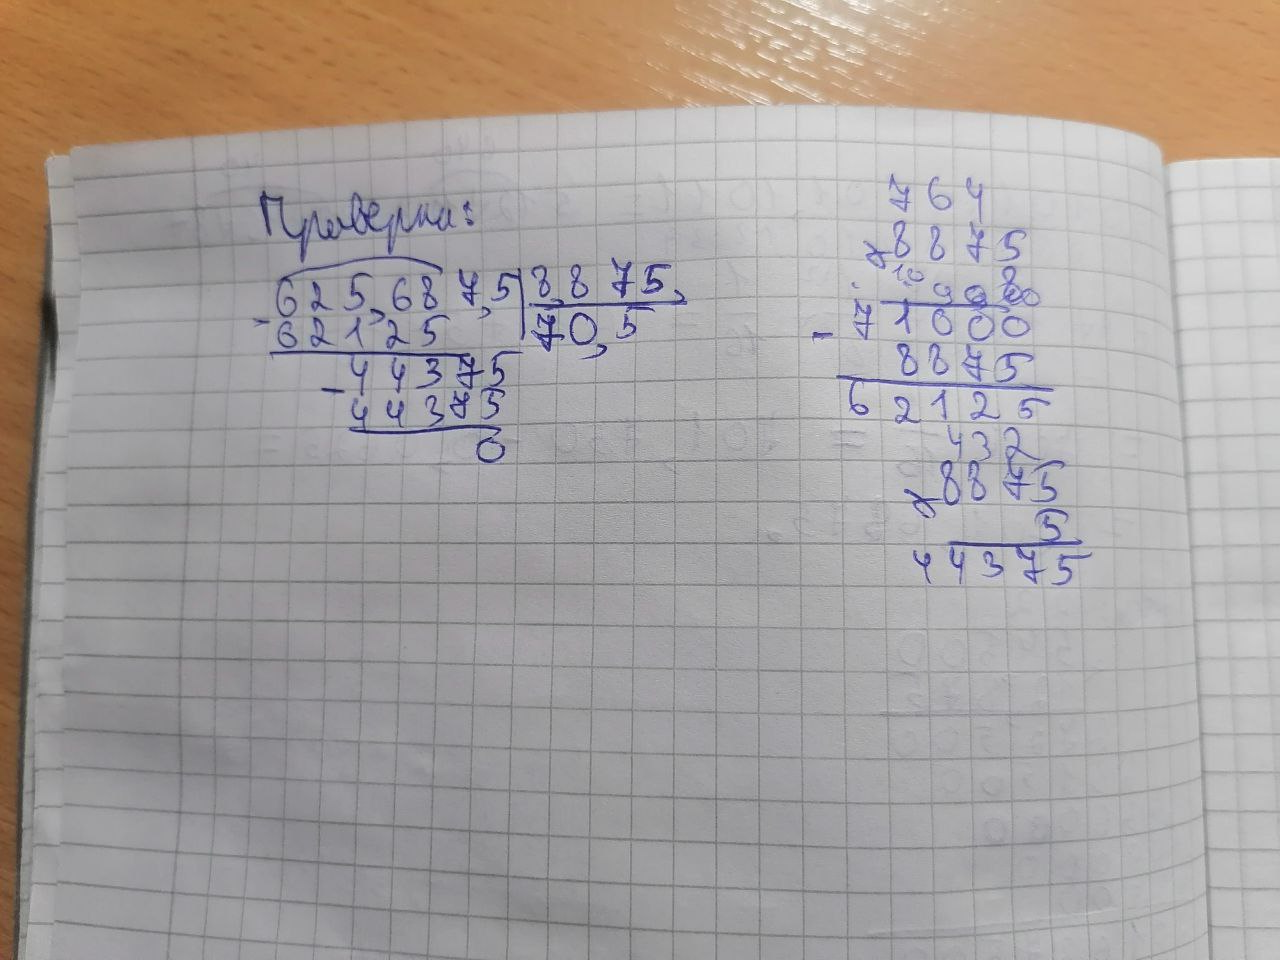 Проверка:
625,687,5 8,875,
- 62125 70,5
44375
- 44375
0
764
x 8875
8
10 9 9 10
- 71000
8875
62125
432
x 8875
5
44375